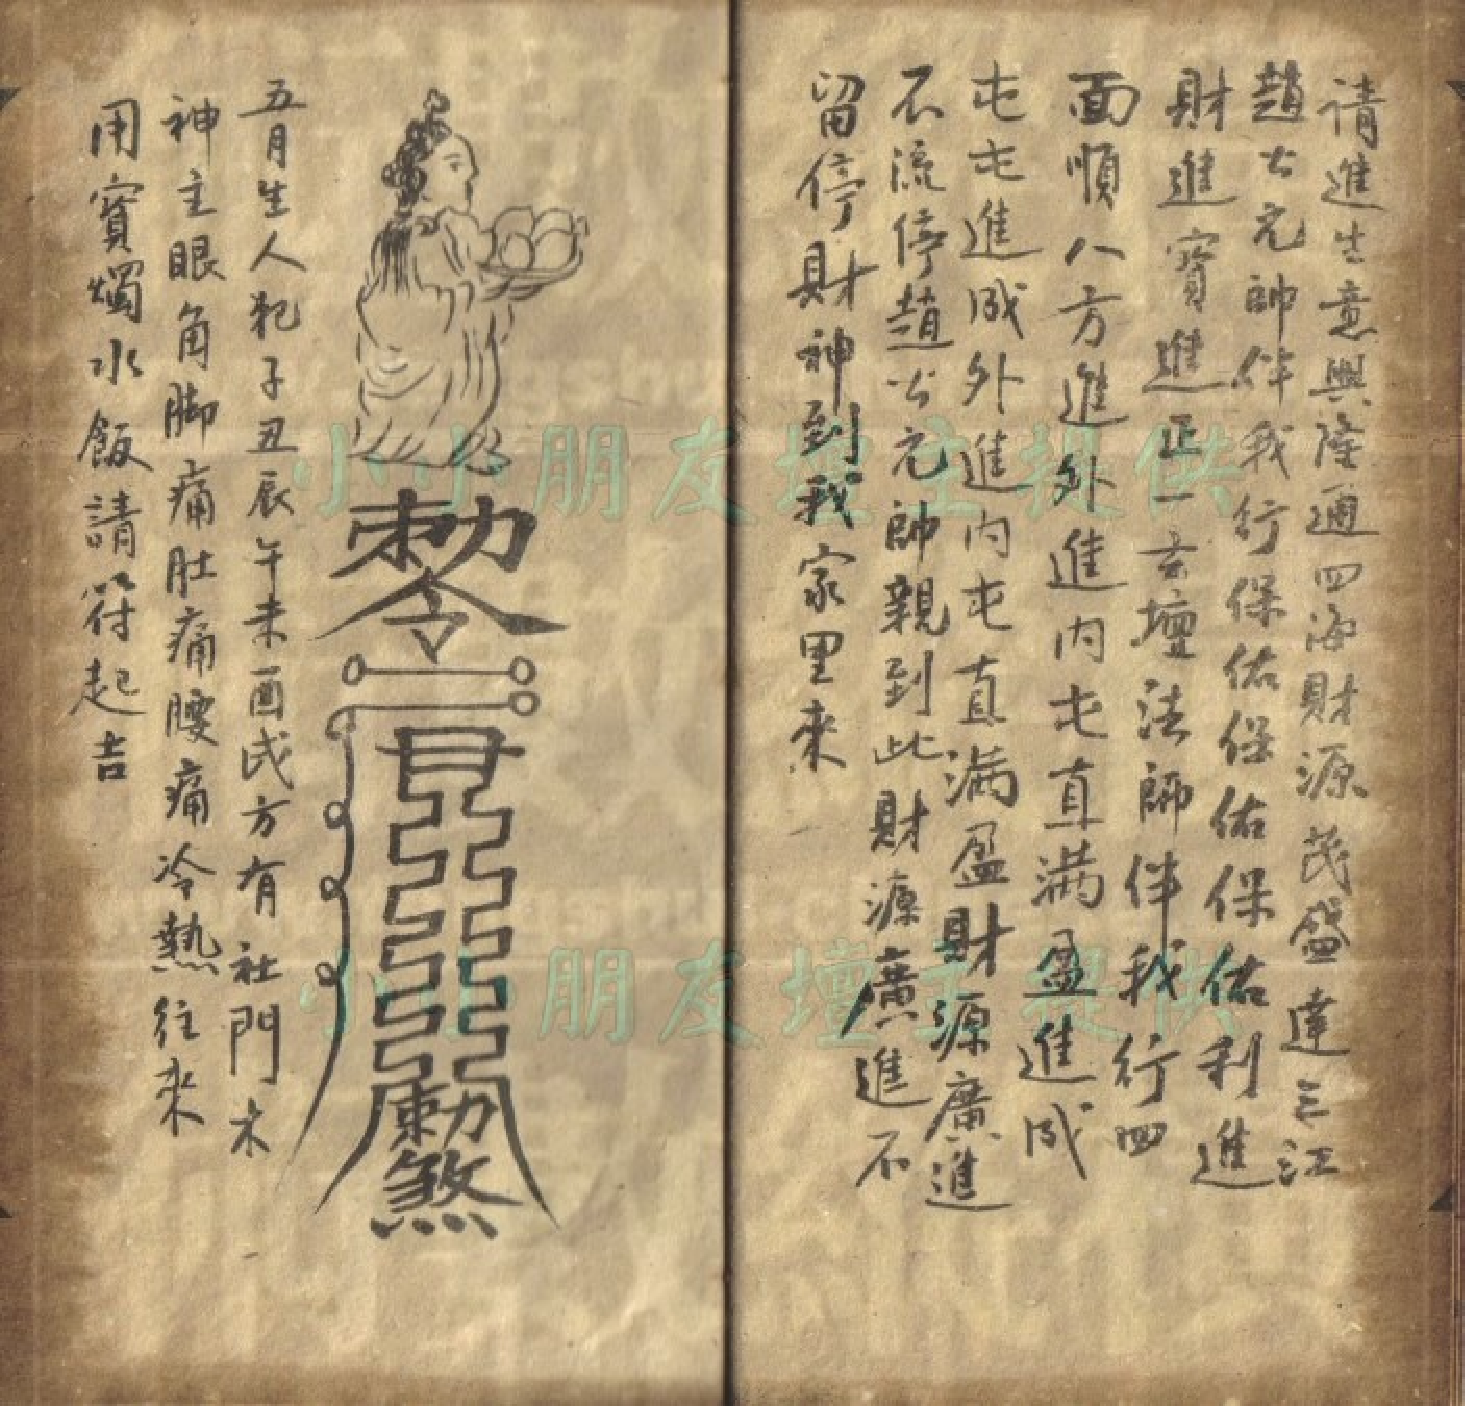 请進生意興隆通四海財源茂盛達三江
趙公元帥伴我行保佑保佑保佑利進
財進寳進正一玄壇法師伴我行四
面順八方進外進内屯直满盈進成
屯屯進成外進内屯直满盈財源廣進
不流停趙公元帥親到此財源廣進不
留停財神到我家里來
勅令
勅煞
五月生人犯子丑辰午未酉戌方有社門木
神主眼角脚痛肚痛腰痛冷熱往來
用寳燭水飯請符起吉
小小朋友壇主提供
小小朋友壇主提供